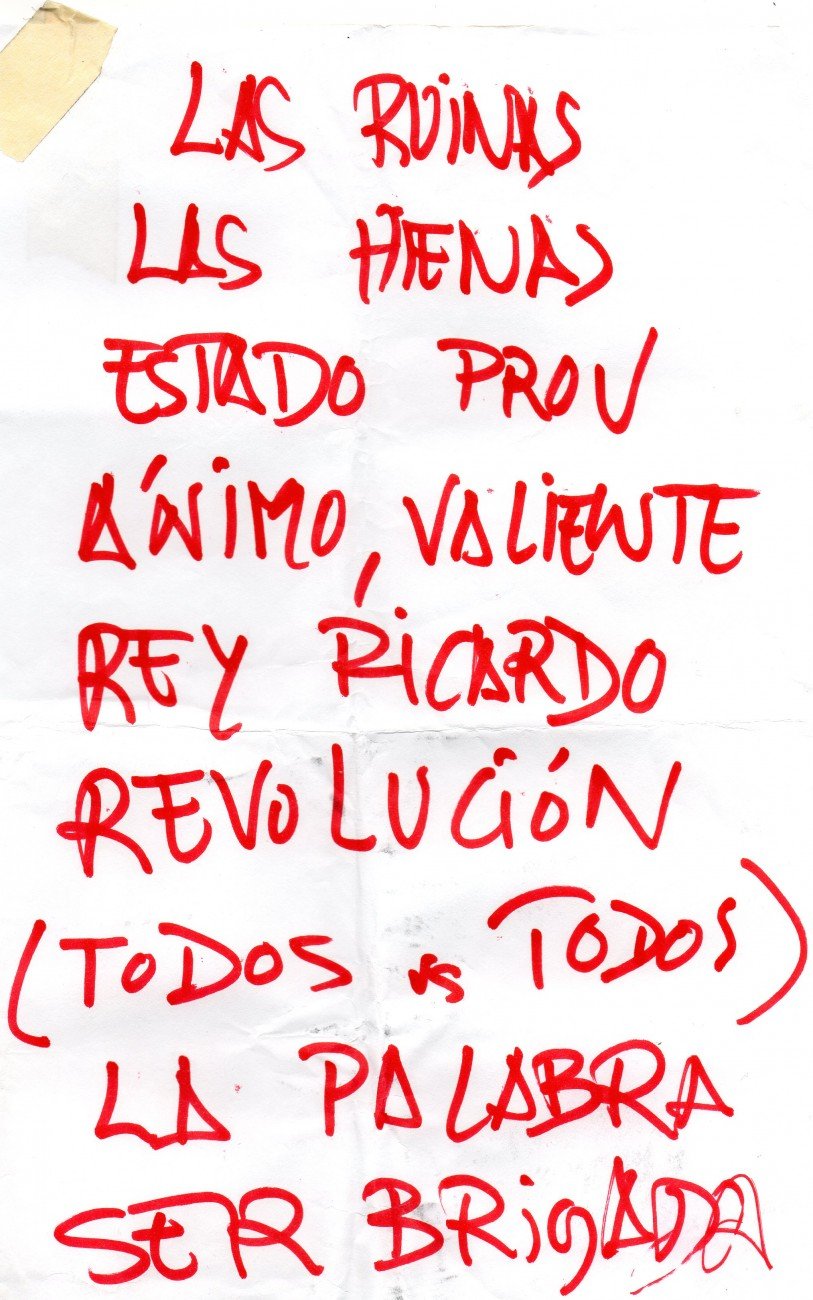 LAS RUINAS
LAS HIENAS
ESTADO PROV
ÁNIMO, VALIENTE
REY RICARDO
REVOLUCIÓN
(TODOS vs TODOS)
LA PALABRA
SER BRIGADA